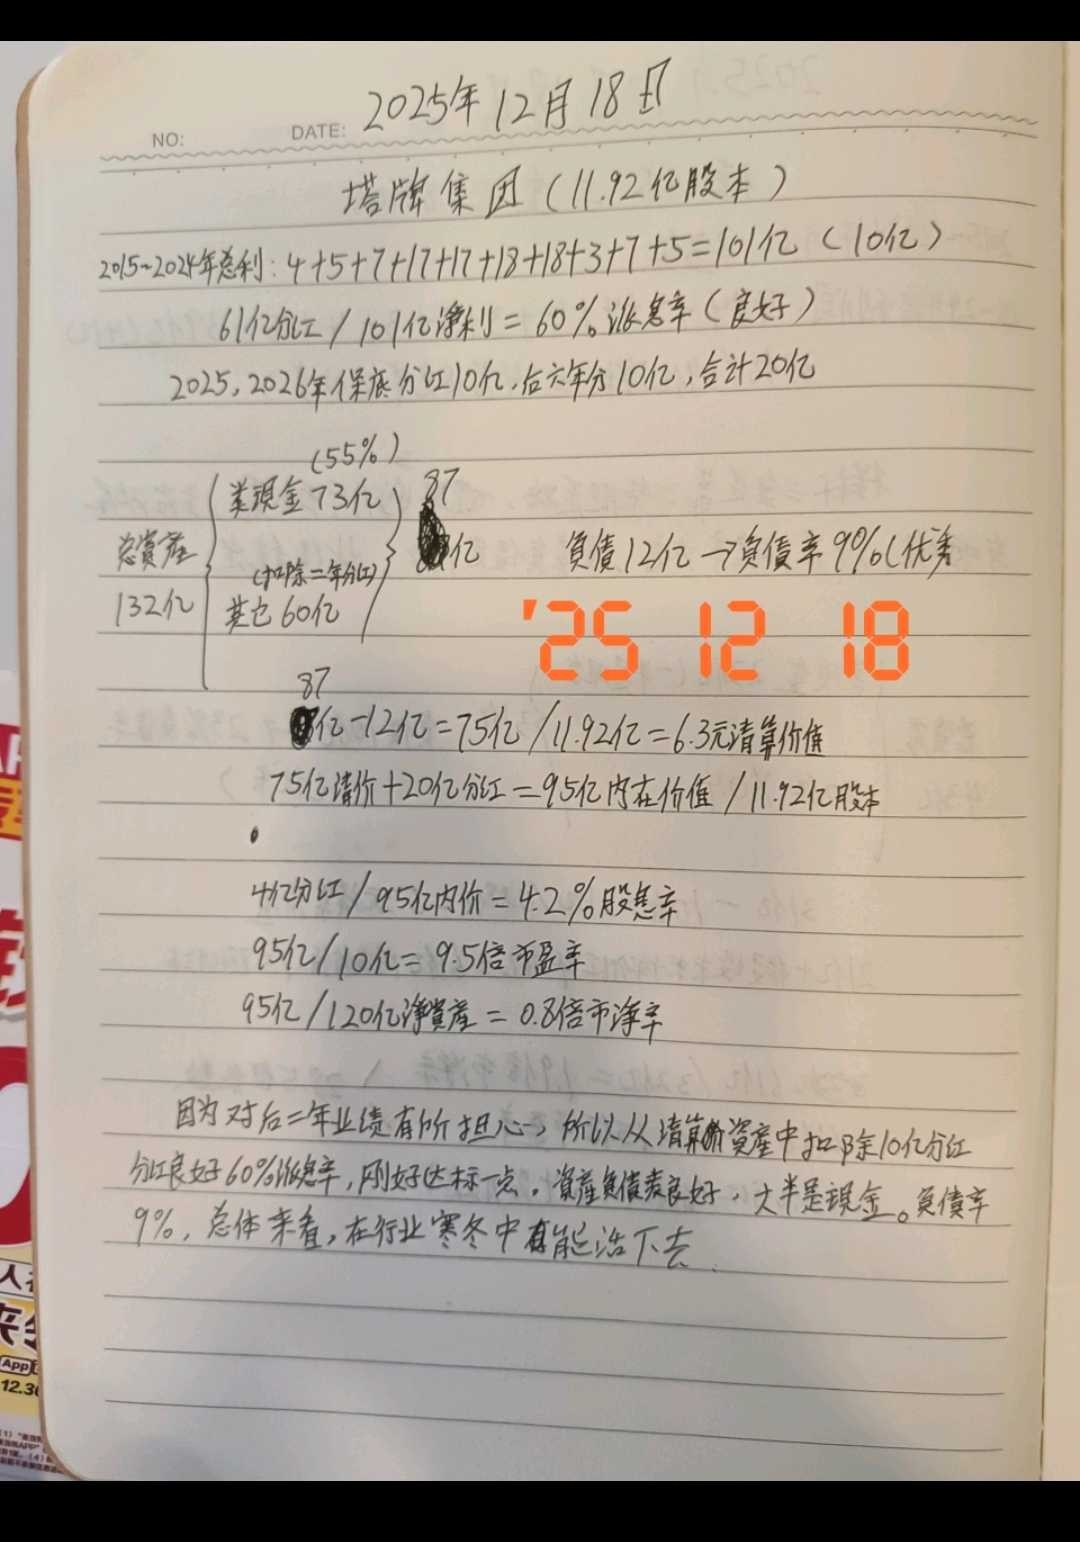 2025年12月18日
NO:
DATE:
塔牌集团(11.92亿股本)
2015~2024年总利:4+5+7+17+17+18+18+3+7+5=101亿(10亿)
61亿分红/101亿净利=60%派息率(良好)
2025,2026年保底分红10亿,后六年分10亿,合计20亿
(55%)
类現金73亿
87
总資産
亿
負債12亿→負債率9%(优秀
(扣除二年分红)
132亿
其它60亿
'25 12 18
87
亿-12亿=75亿/11.92亿=6.3元清算价值
75亿清价+20亿分红=95亿内在价值/11.92亿股本
4亿分红/95亿内价=4.2%股息率
95亿/10亿=9.5倍市盈率
95亿/120亿净資産=0.8倍市净率
因为对后二年业绩有所担心,所以从清算資産中扣除10亿分红
分红良好60%派息率,刚好达标一点。資産負债表良好,大半是現金。負债率
9%,总体来看,在行业寒冬中能活下去.
App
12.30